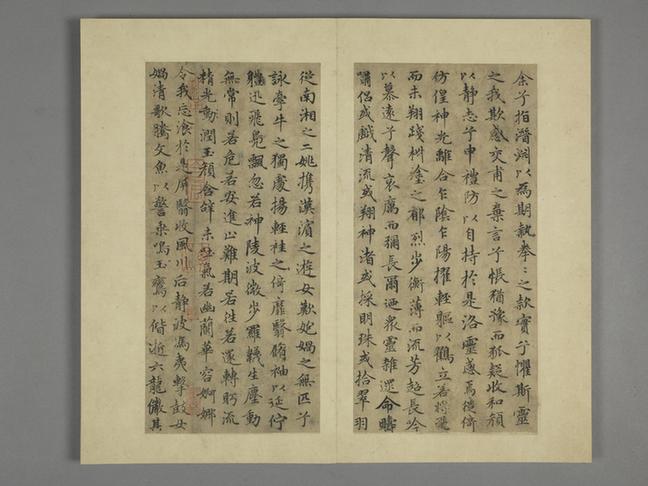 余兮指潛淵以為期執拳拳之款實兮懼斯靈
之我欺感交甫之棄言兮悵猶豫而狐疑收和顏
以靜志兮申禮防以自持於是洛靈感焉徙倚
彷徨神光離合乍陰乍陽擢輕軀以鶴立若將飛
而未翔踐椒塗之郁烈步衡薄而流芳超長吟
以慕遠兮聲哀厲而彌長爾迺衆靈雜遝命疇
嘯侶或戲清流或翔神渚或採明珠或拾翠羽
從南湘之二姚攜漢濱之遊女歎媧之無匹兮
詠牽牛之獨處揚輕袿之倚靡翳脩袖以延佇
軆迅飛鳧飄忽若神陵波微步羅韈生塵動
無常則若危若安進止難期若往若還轉眄流
精光動潤玉顏含辭未吐氣若幽蘭華容婀娜
令我忘飡於是屏翳收風川后靜波馮夷擊鼓女
媧清歌騰文魚以警乘鳴玉鸞以偕逝六龍儼其